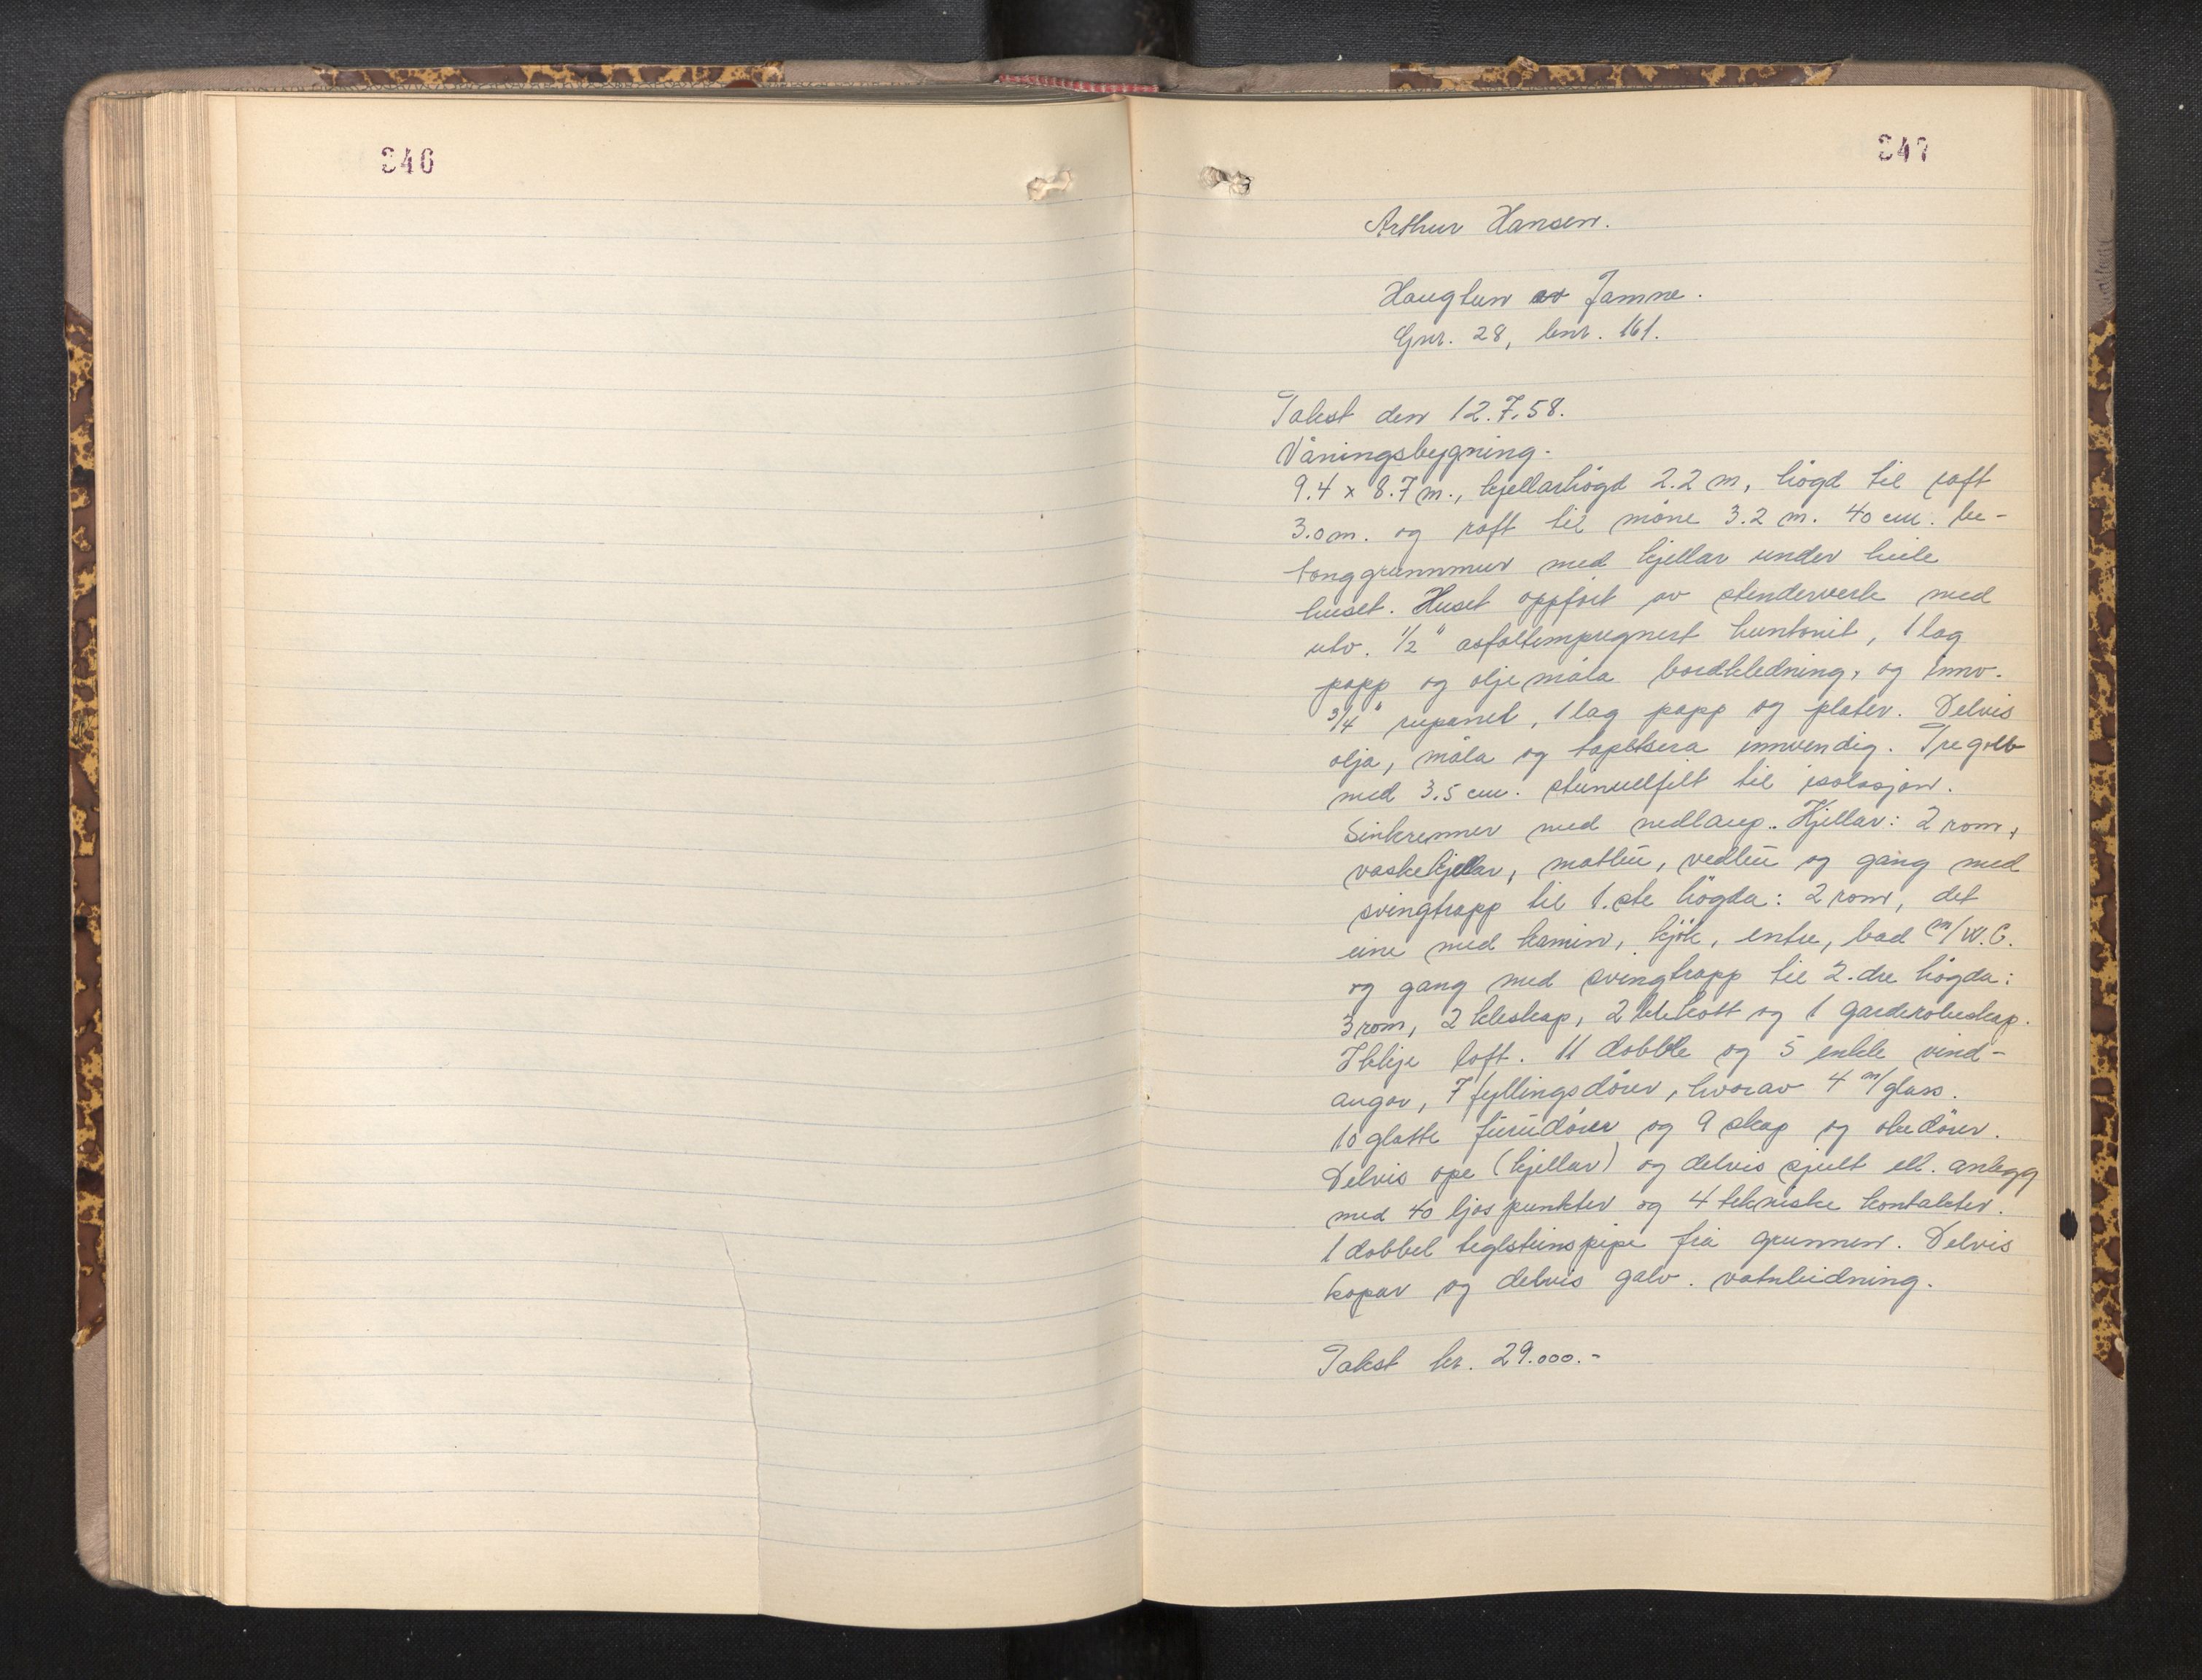 346
347
Arthur Hansen.
Haugtun av Jamne.
Gnr. 28, bnr. 161.
Takst den 12.7.58.
Våningsbygning.
9.4 x 8.7 m., kjellarhögd 2.2 m, högd til raft
3.0 m. og raft til møne 3.2 m. 40 cm. be-
tonggrunnmur med kjellar under heile
huset. Huset oppført av stenderverk med
utv. 1/2" asfaltimpregnert huntonit, 1 lag
papp og oljemåla bordkledning, og innv.
3/4" rupanel, 1 lag papp og plater. Delvis
olja, måla og tapetsera innvendig. Tregolv
med 3.5 cm. steinullfilt til isolasjon.
Sinkrenner med nedlaup. Kjellar: 2 rom,
vaskekjellar, matbu, vedbu og gang med
svingtrapp til 1.ste högda: 2 rom, det
eine med kamin, kjøk, entre, bad m/W.C.
og gang med svingtrapp til 2.dre högda:
3 rom, 2 kleskap, 2 klekott og 1 garderobeskap.
Ikkje loft. 11 dobble og 5 enkle vind-
augor, 7 fyllingsdører, hvorav 4 m/glass.
10 glatte furudører og 9 skap og
Delvis ope (kjellar) og delvis sjult ell. anlegg
med 40 ljospunkter og 4 tekniske kontakter.
1 dobbel teglsteinspipe frå grunnen. Delvis
kopar og delvis galv. vatnleidning.
Takst kr. 29.000.-